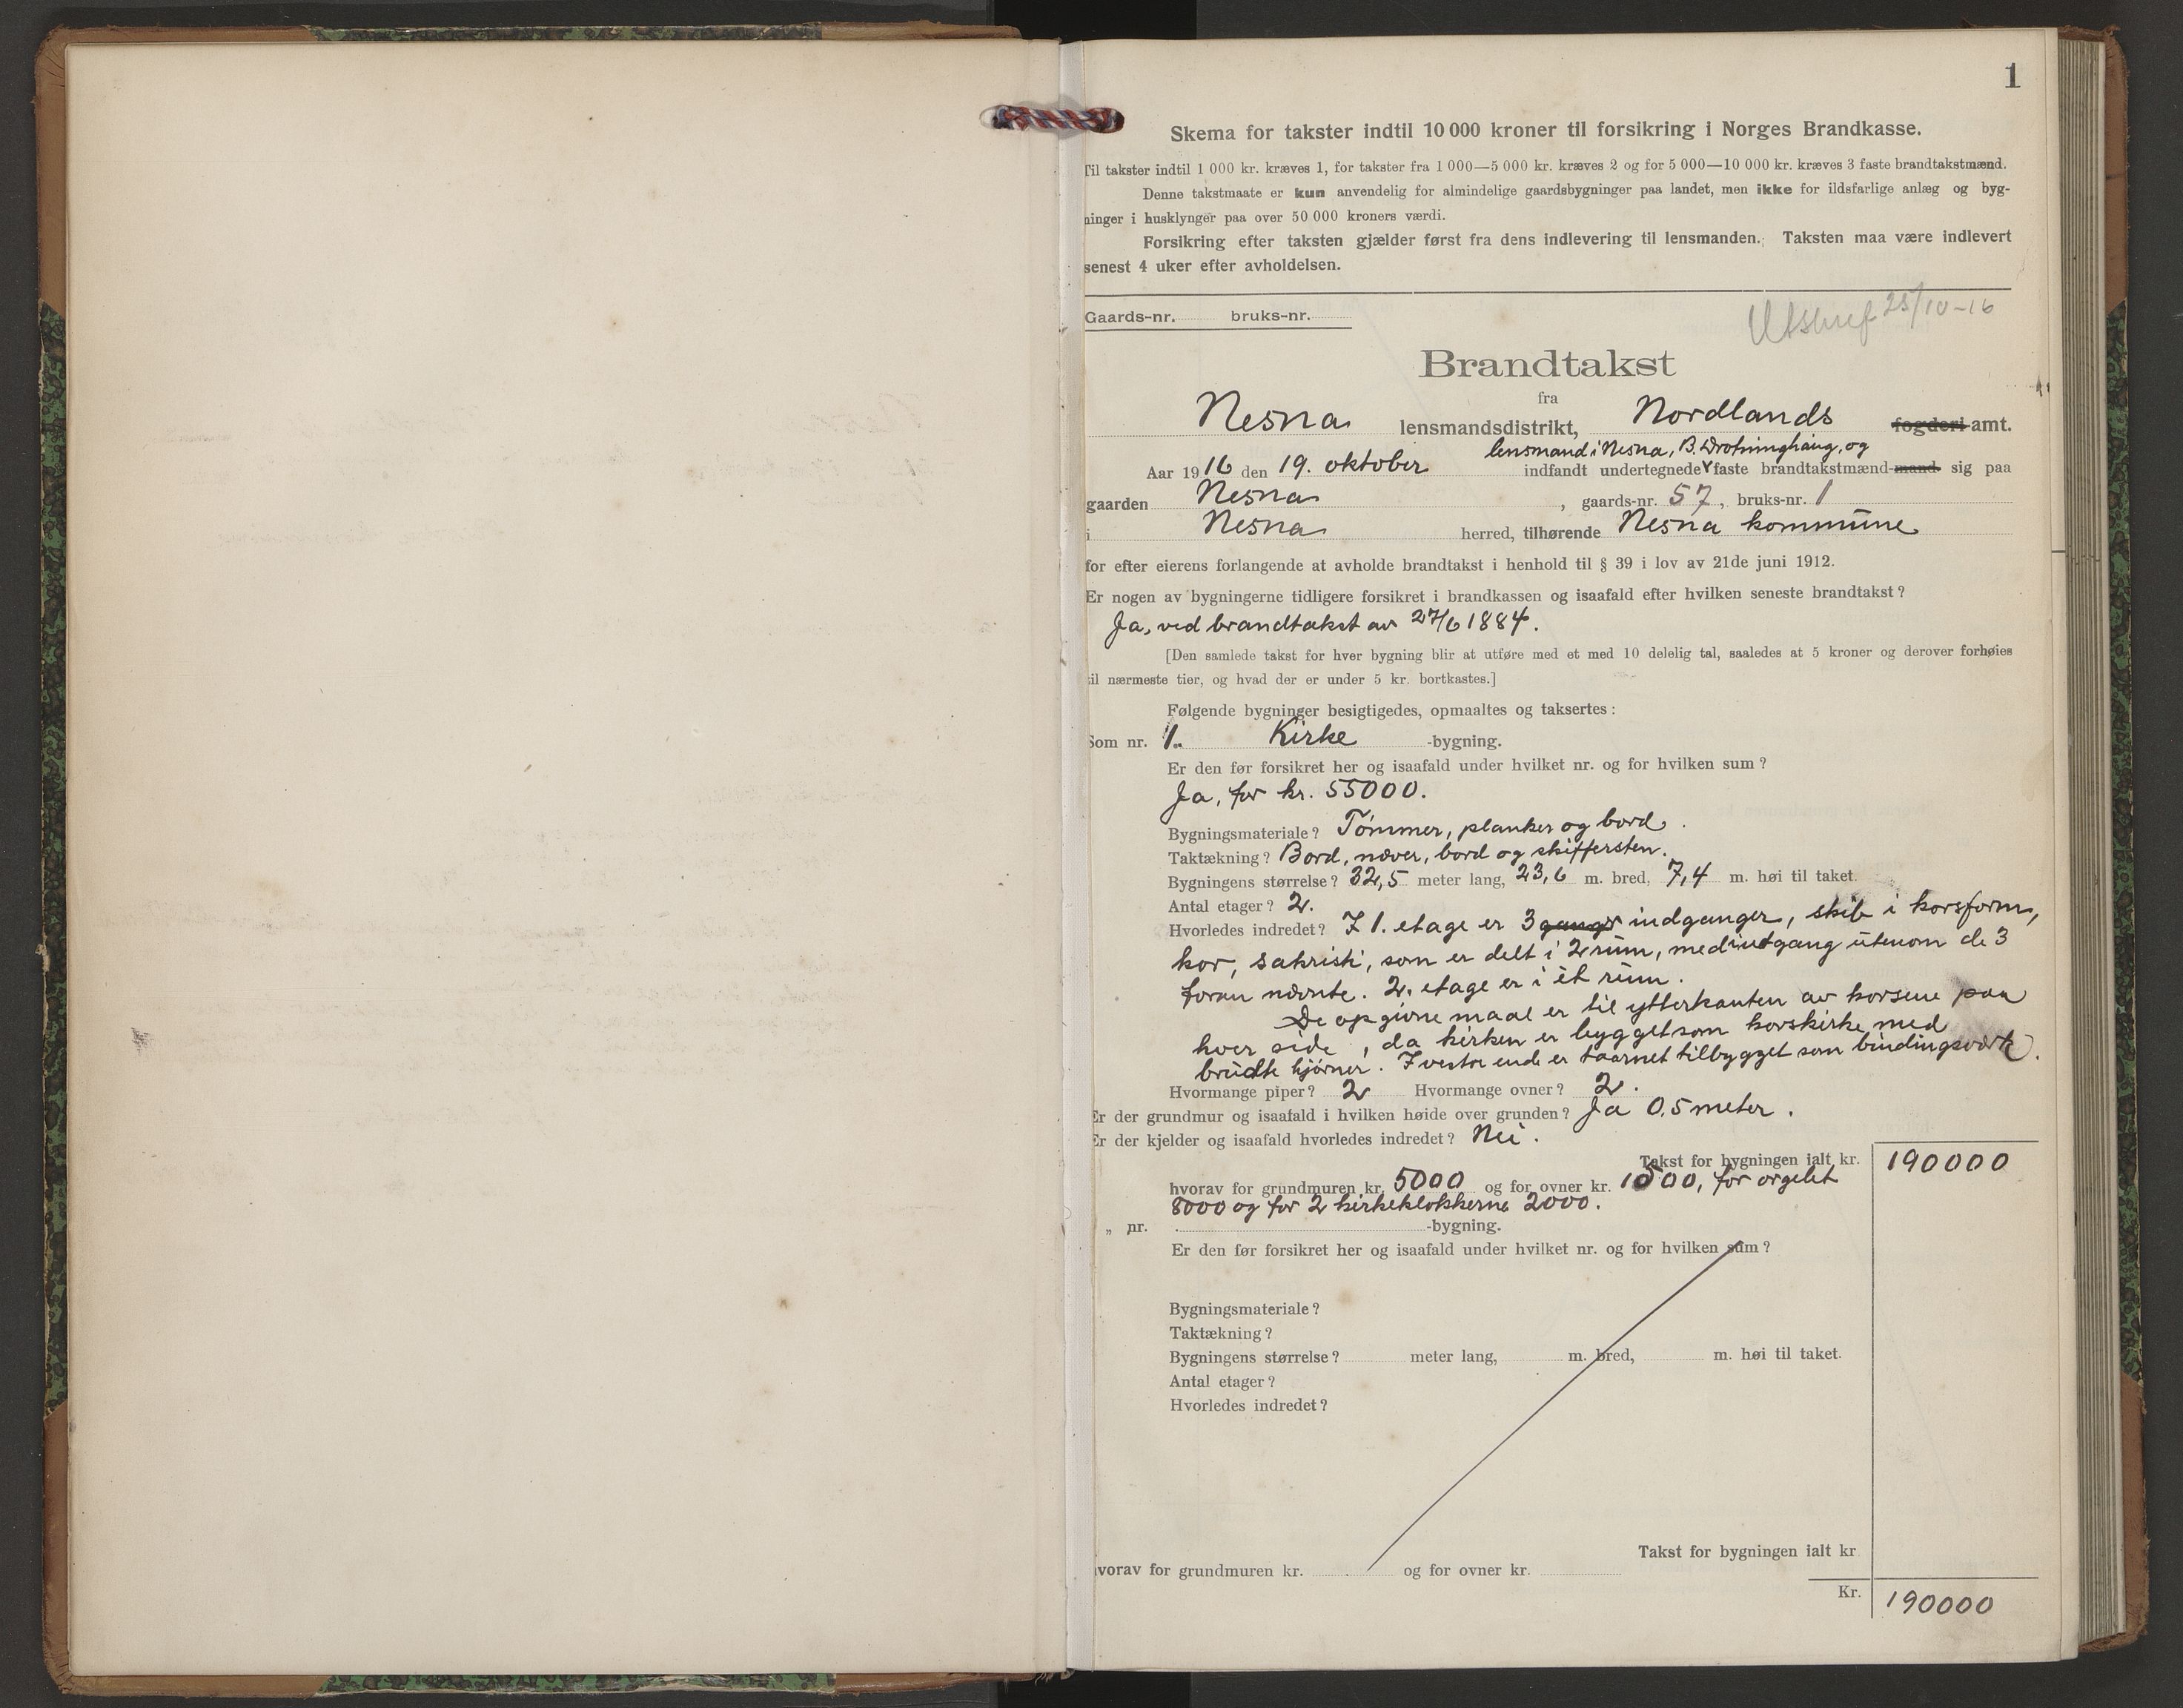 1
Skema for takster indtil 10 000 kroner til forsikring i Norges Brandkasse.
Til takster indtil 1 000 kr. kræves 1, for takster fra 1 000—5 000 kr. kræves 2 og for 5 000—10 000 kr. kræves 3 faste brandtakstmænd.
Denne takstmaate er kun anvendelig for almindelige gaardsbygninger paa landet, men ikke for ildsfarlige anlæg og byg-
ninger i husklynger paa over 50 000 kroners værdi.
Forsikring efter taksten gjælder først fra dens indlevering til lensmanden. Taksten maa være indlevert
senest 4 uker efter avholdelsen.
Gaards-nr. bruks-nr.
Utskref 25/10-16
Brandtakst
fra
Nesna lensmandsdistrikt, Nordlands fogderi amt.
lensmand i Nesna, B. Drotninghaug, og
Aar 1916 den 19. oktober indfandt undertegnede faste brandtakstmænd mand sig paa
gaarden Nesna, gaards-nr. 57, bruks-nr. 1
i Nesna herred, tilhørende Nesna kommune
for efter eierens forlangende at avholde brandtakst i henhold til § 39 i lov av 21de juni 1912.
Er nogen av bygningerne tidligere forsikret i brandkassen og isaafald efter hvilken seneste brandtakst?
Ja, ved brandtakst av 27/6 1884.
[Den samlede takst for hver bygning blir at utføre med et med 10 delelig tal, saaledes at 5 kroner og derover forhøies
til nærmeste tier, og hvad der er under 5 kr. bortkastes.]
Følgende bygninger besigtigedes, opmaaltes og taksertes:
Som nr. 1. Kirke -bygning.
Er den før forsikret her og isaafald under hvilket nr. og for hvilken sum?
Ja, for kr. 55000.
Bygningsmateriale? Tømmer, planker og bord.
Taktækning? Bord, næver, bord og skiffersten.
Bygningens størrelse? 32,5 meter lang, 23,6 m. bred, 7,4 m. høi til taket.
Antal etager? 2.
Hvorledes indredet? I 1. etage er 3 ganger indganger, skib i korsform,
kor, sakristi, som er delt i 2 rum, med indgang utenom de 3
foran nævnte. 2. etage er i èt rum.
De opgivne maal er til ytterkanten av korsene paa
hver side, da kirken er bygget som korskirke med
brudte hjørner. I vestre ende er taarnet tilbygget som bindingsverk.
Hvormange piper? 2 Hvormange ovner? 2.
Er der grundmur og isaafald i hvilken høide over grunden? Ja 0,5 meter.
Er der kjelder og isaafald hvorledes indredet? Nei.
Takst for bygningen ialt kr. 190000
hvorav for grundmuren kr. 5000 og for ovner kr. 1500, for orgelet
8000 og for 2 kirkeklokkerne 2000.
„ nr. -bygning.
Er den før forsikret her og isaafald under hvilket nr. og for hvilken sum?
Bygningsmateriale?
Taktækning?
Bygningens størrelse? meter lang, m. bred, m. høi til taket.
Antal etager?
Hvorledes indredet?
Takst for bygningen ialt kr
hvorav for grundmuren kr. og for ovner kr.
Kr. 190000